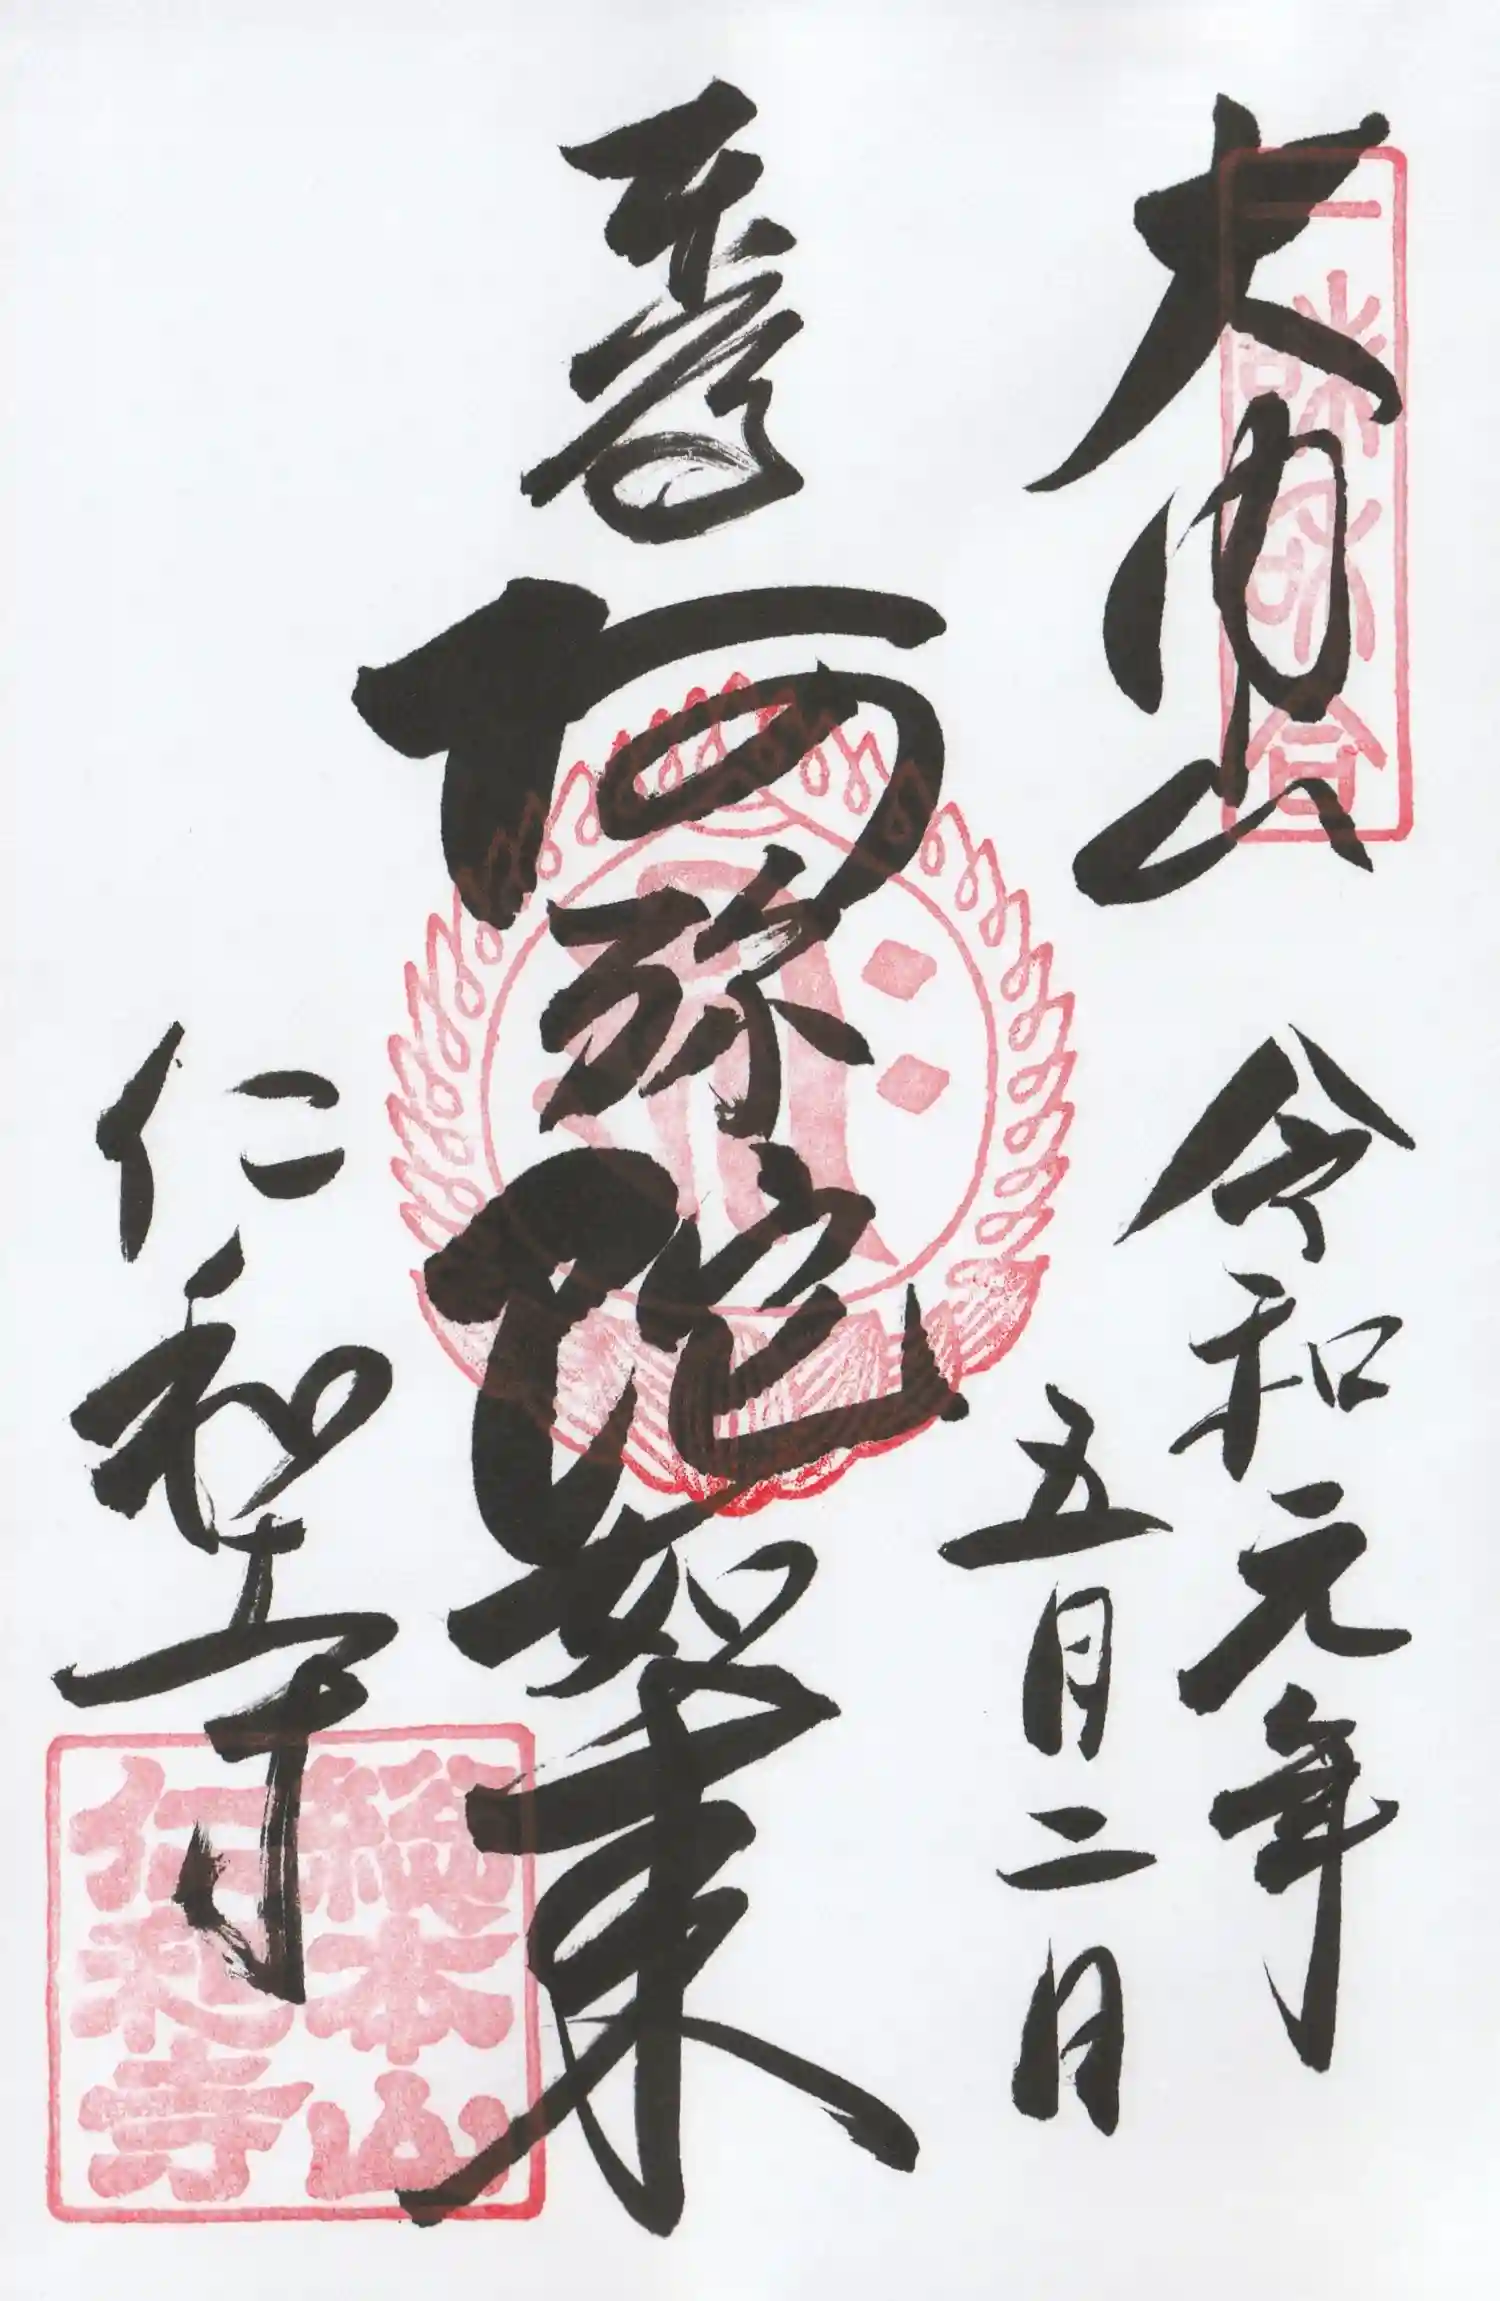 一味和合
大内山
令和元年
五月二日
阿弥陀如来
仁和寺
總本山
仁和寺